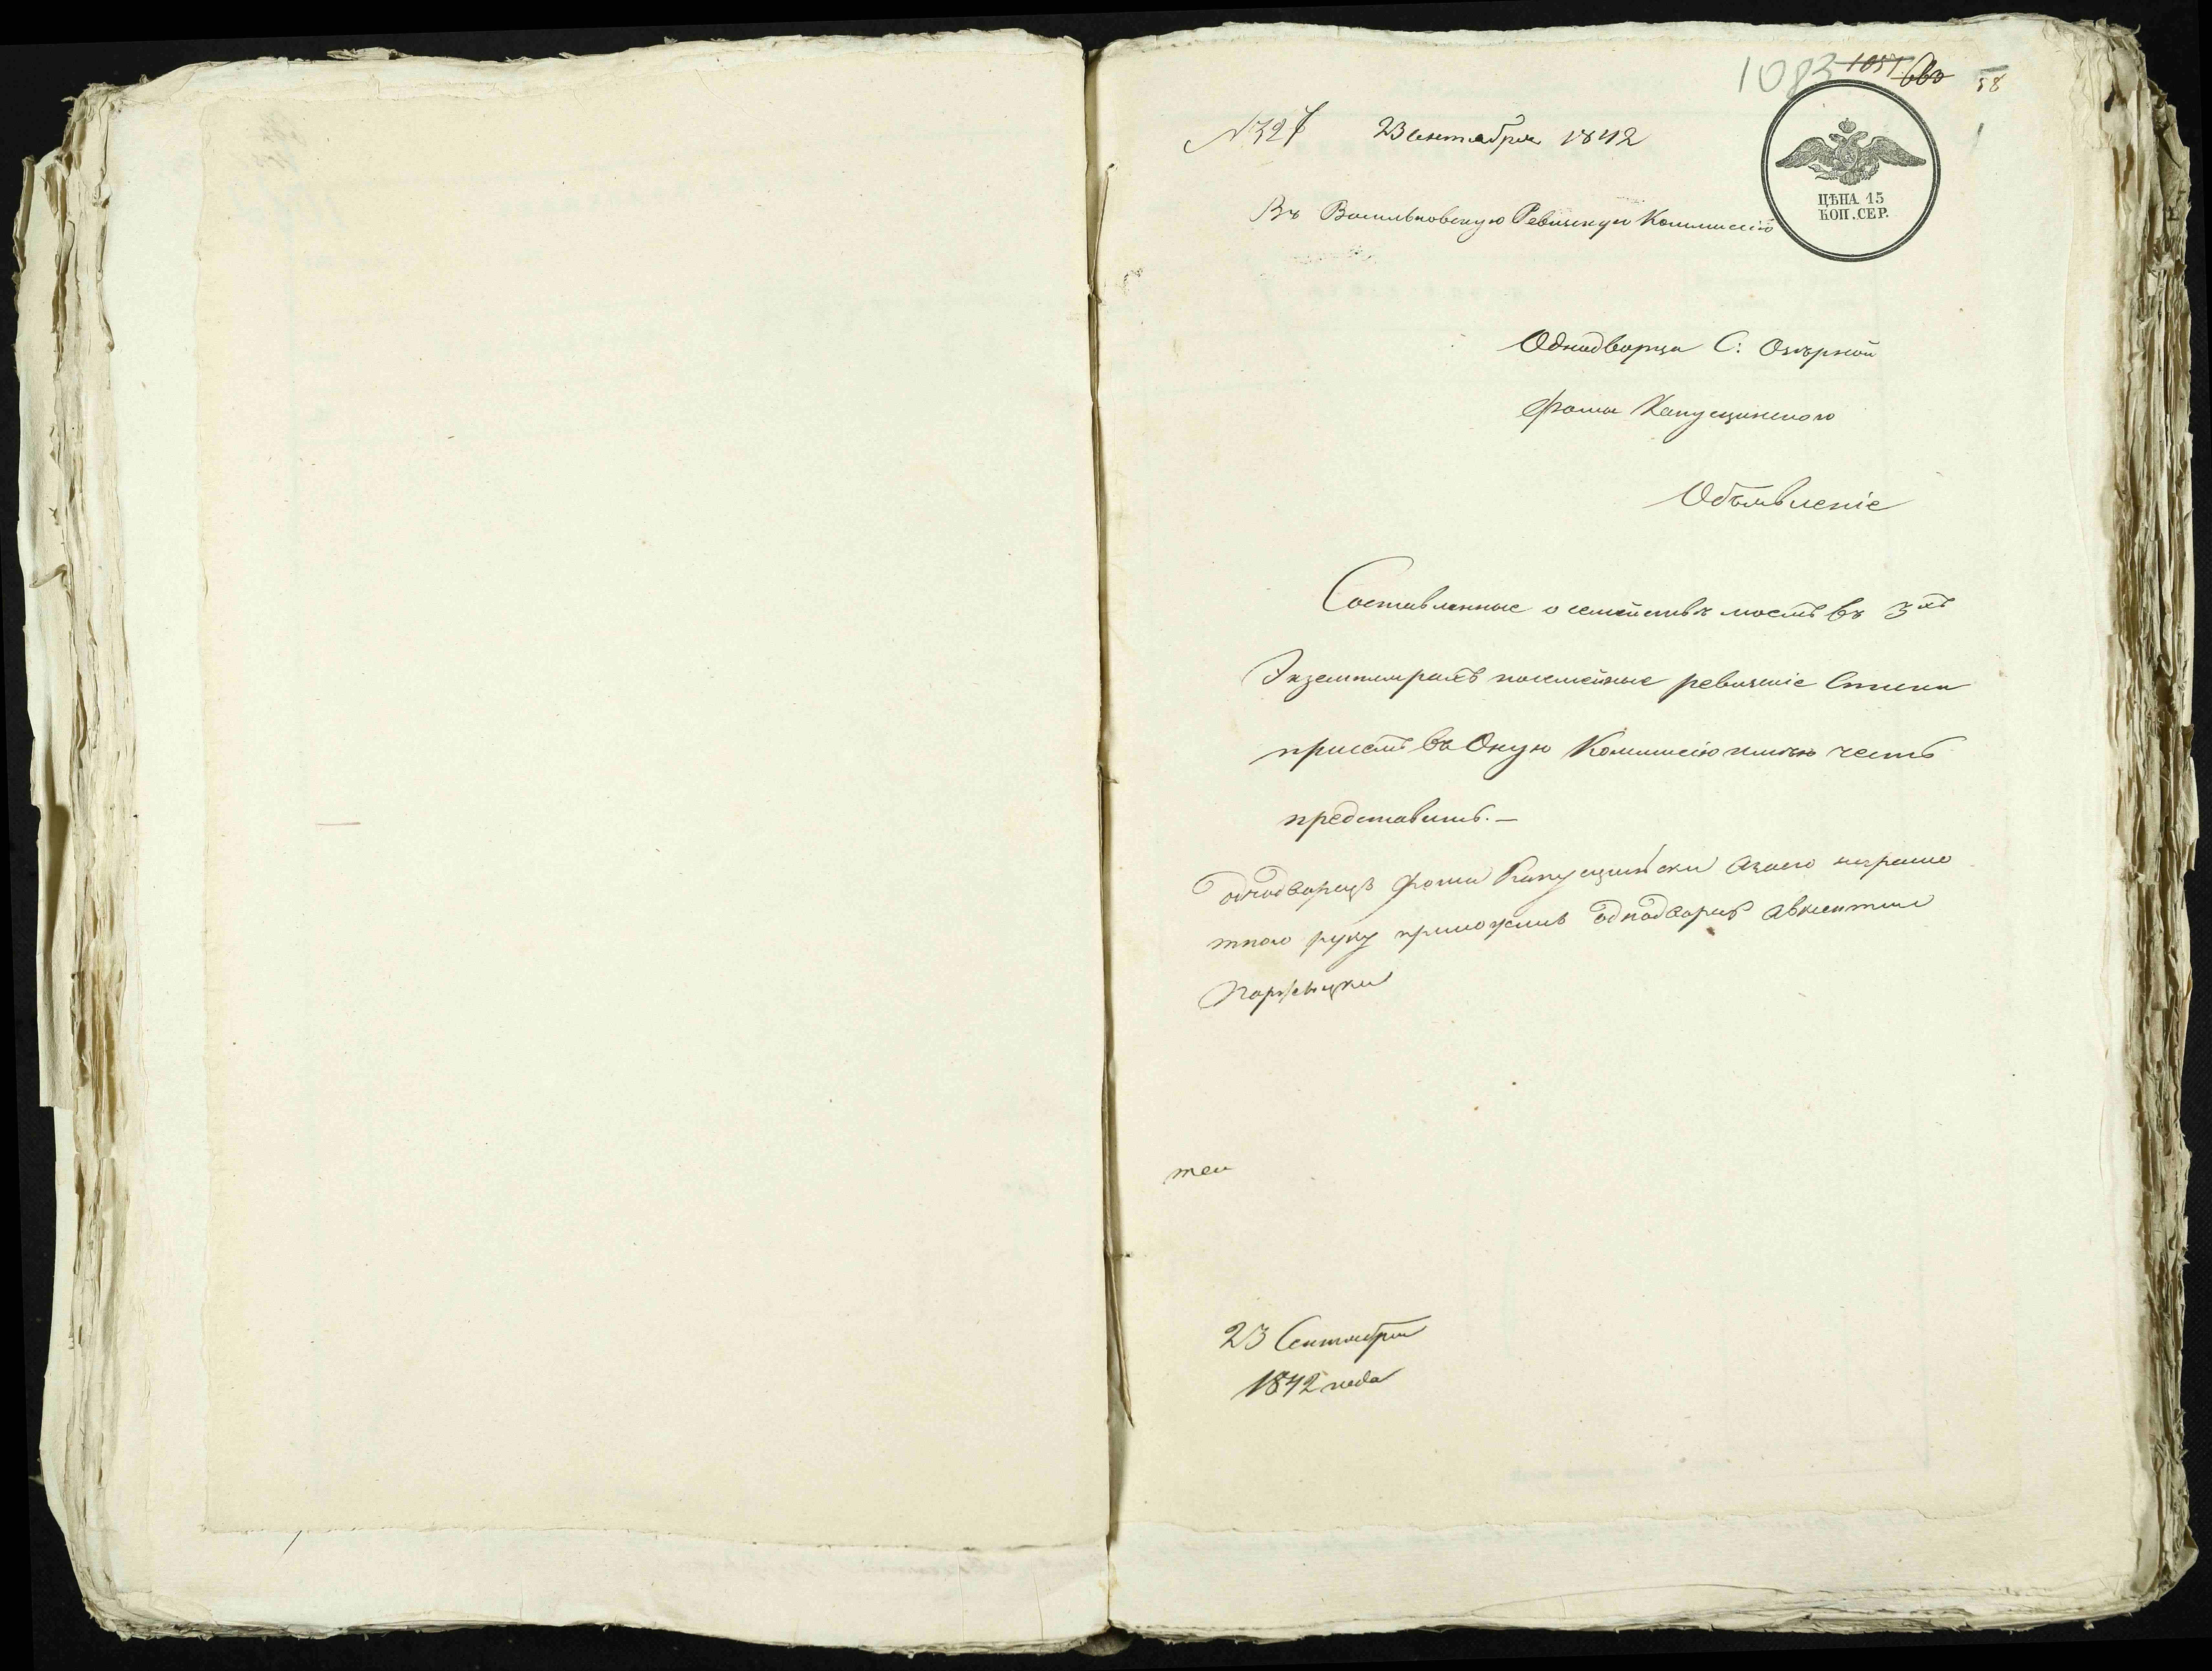 1083 1051 660 58
№ 327 23 Сентября 1842
ЦѢНА 15
КОП. СЕР.
Въ Васильковскую Ревизскую Коммисію
Однодворца С: Озѣрной
Фомы Капущинского
Объявленіе
Составленные о семействѣ моемъ въ 3хъ
Экземплярахъ посемейные ревизскіе Списки
при семъ въ Оную Коммисію имѣю честь
представить. —
однодворецъ Фома Капущински а заего неграмо
тного руку приложилъ однодворецъ Авксентии
23 Сентября
1842 года